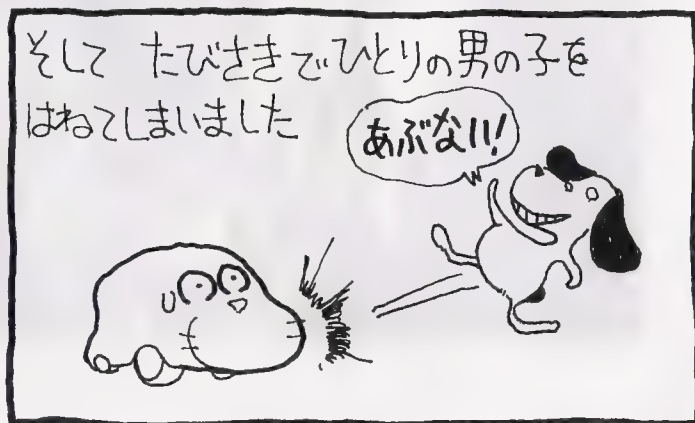 そして たびさきでひとりの男の子を
はねてしまいました
あぶない!